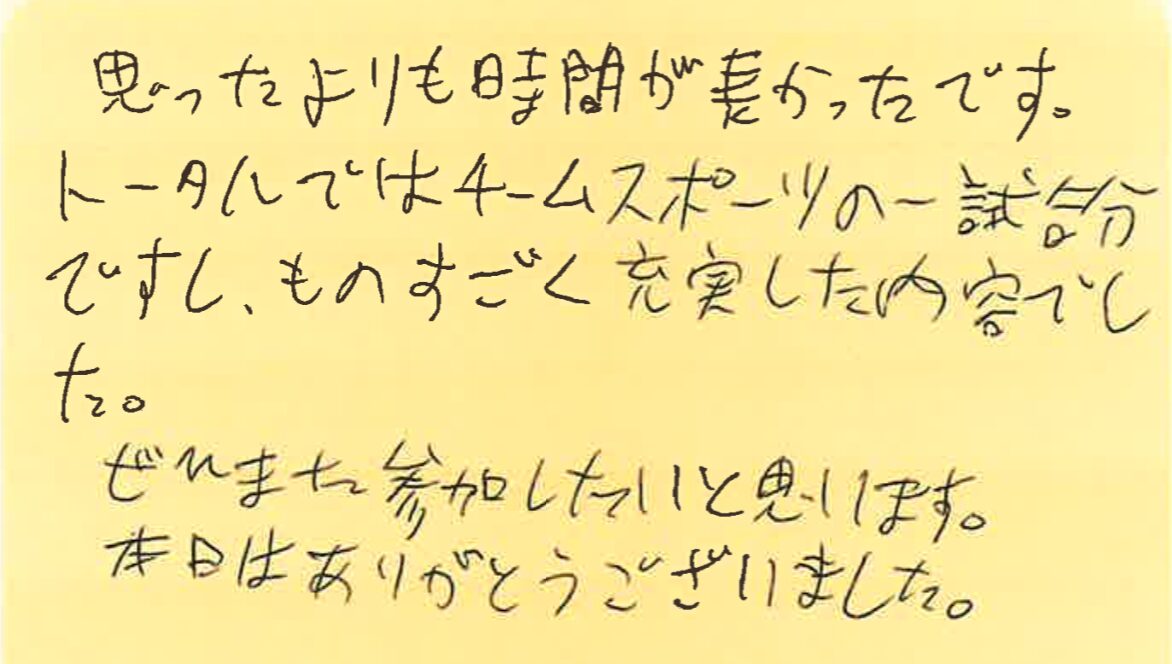 思ったよりも時間が長かったです。
トータルではチームスポーツの一試合分
ですし、ものすごく充実した内容でし
た。
ぜひまた参加したいと思います。
本日はありがとうございました。